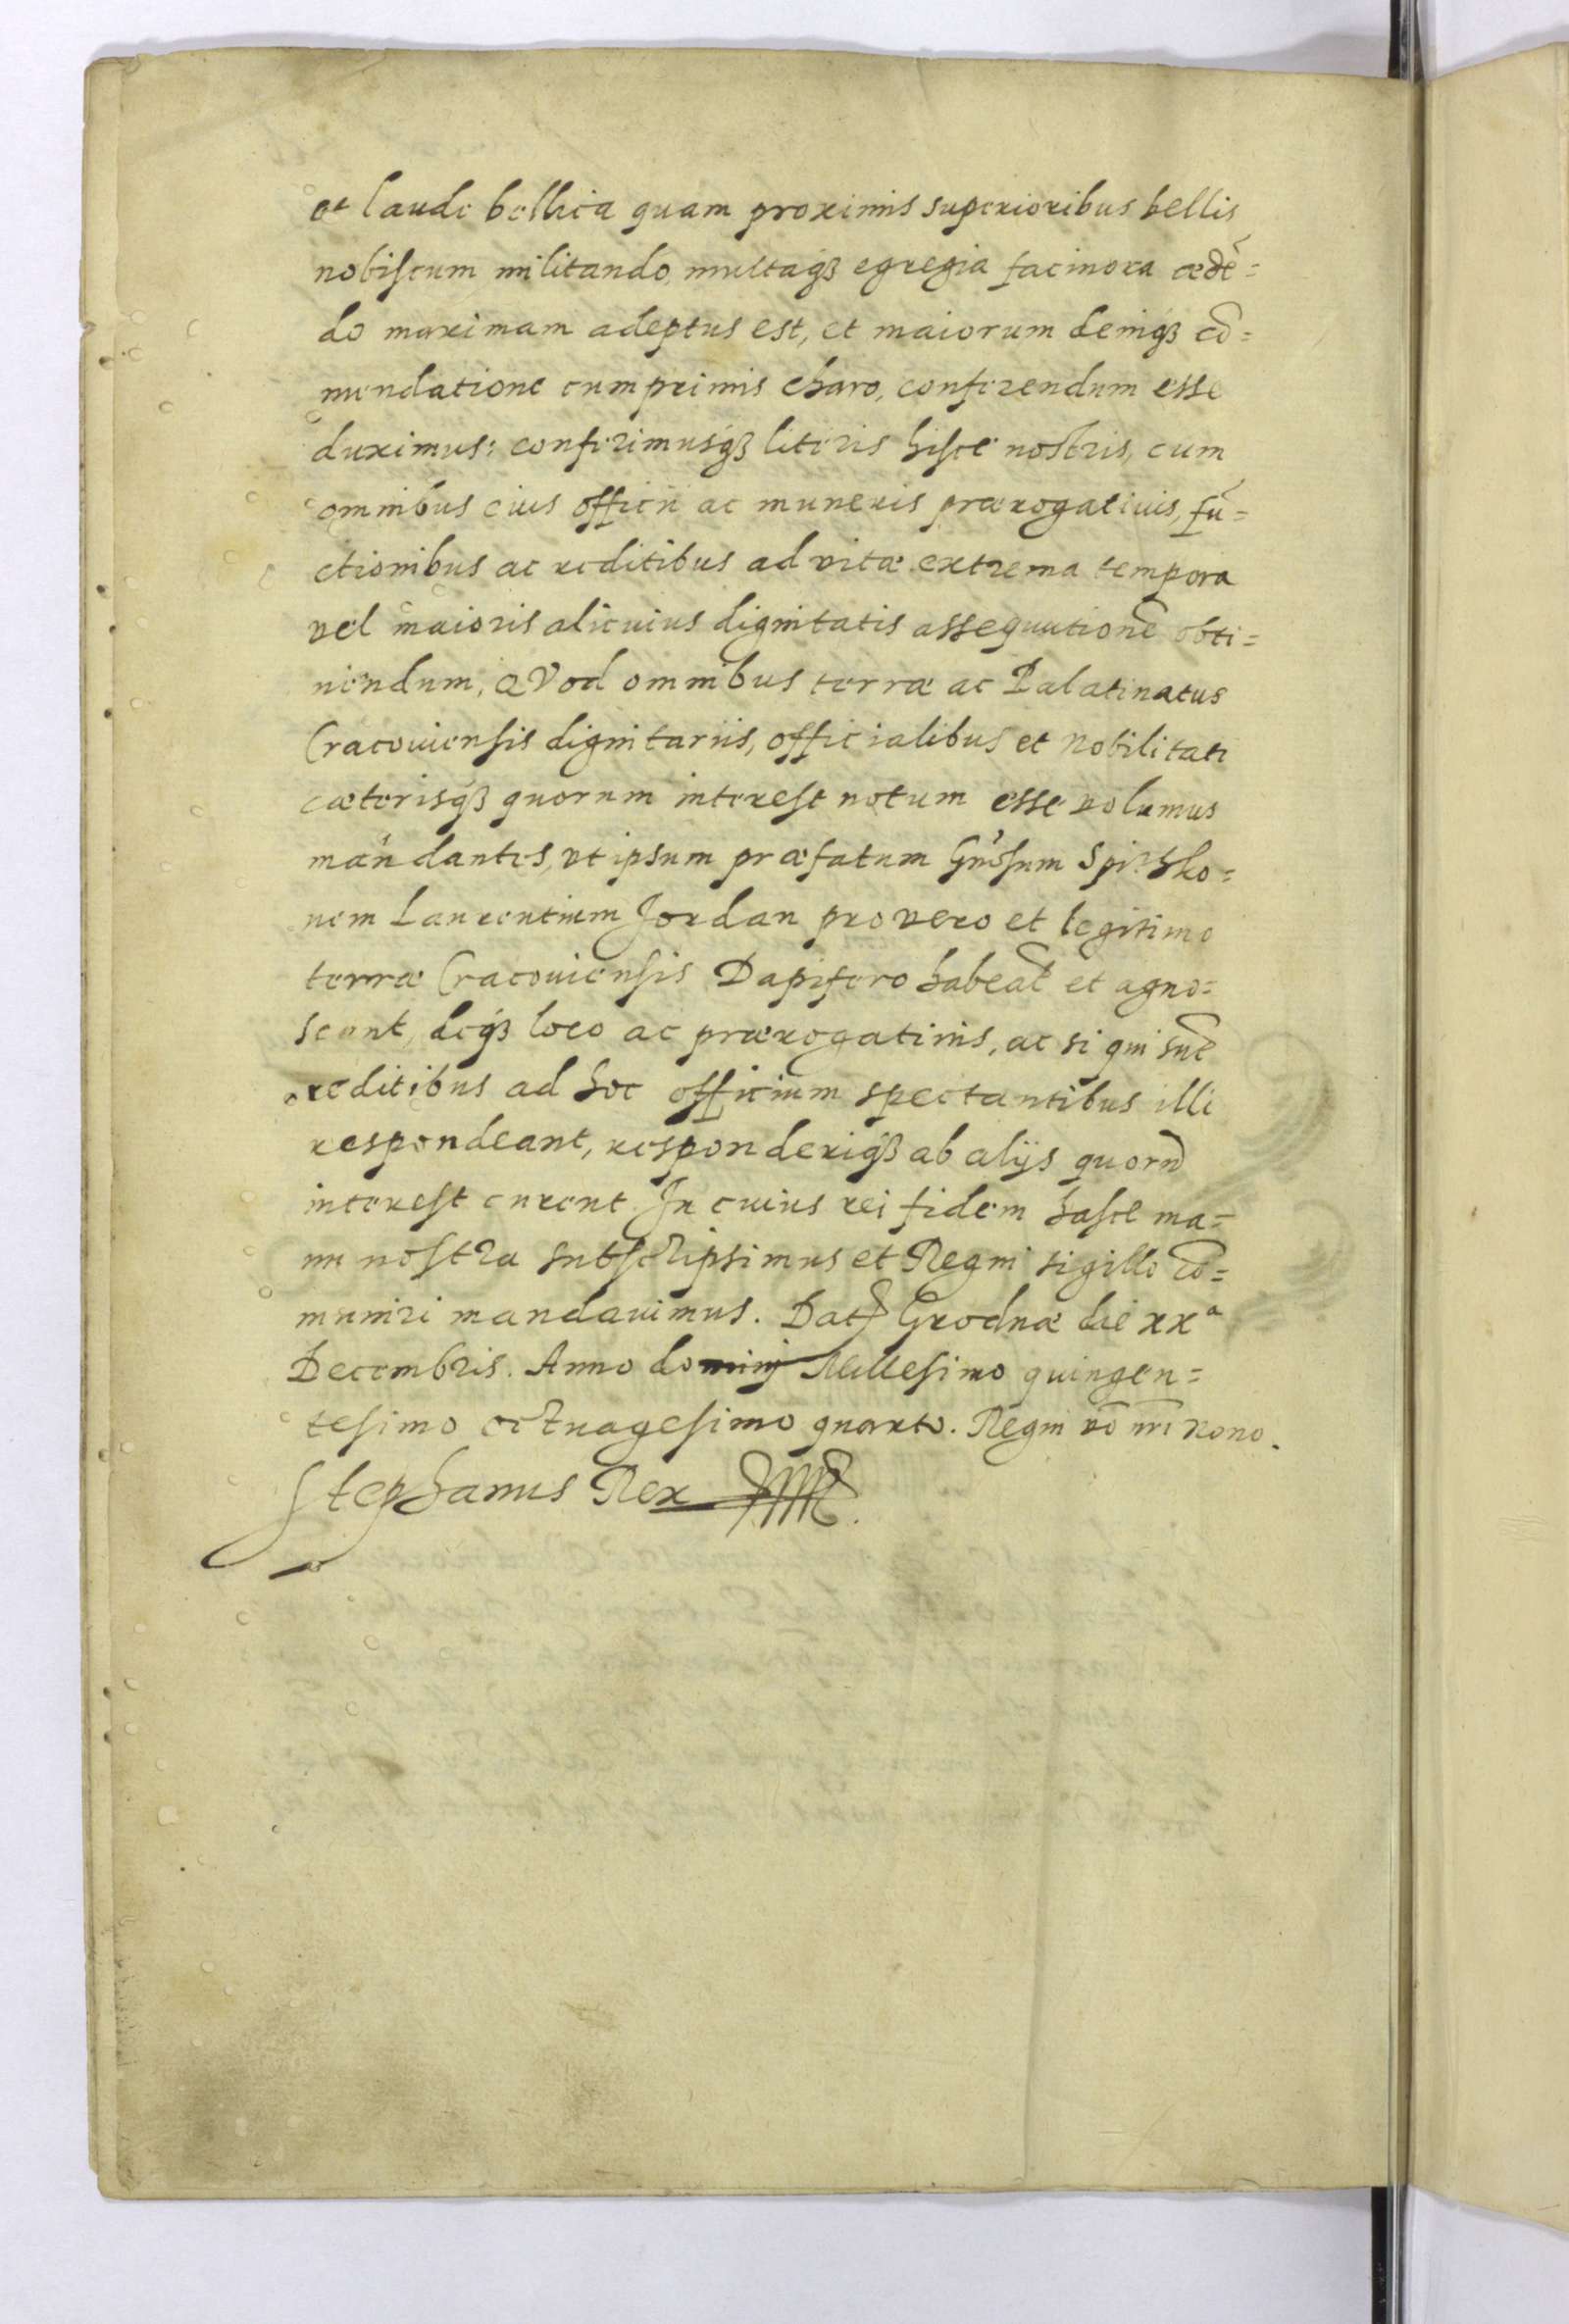 et laude bellica quam proximis superioribus bellis
nobiscum militando, multaqȝ egregia facinora ædē=
do maximam adeptus est, et maiorum deniqȝ cō=
mendatione cumprimis charo, conferendum esse
duximus: conferimusqȝ literis hisce nostris, cum
omnibus eius officii ac muneris prærogativis, fū=
ctionibus ac reditibus ad vitæ extrema tempora
vel maioris alicuius dignitatis assequutionē obti=
nendum, QVod omnibus terræ ac Palatinatus
Cracouiensis dignitariis, officialibus et Nobilitati
cæterisqȝ quorum interest notum esse volumus
mandantes, vt ipsum præfatum Gn̄osum
nem Laurentium Jordan pro vero et legitimo
terræ Cracouiensis Dapifero habeāt et agno=
scant, deqȝ loco ac prærogatiuis, ac si qui sūt
reditibus ad hoc officium spectantibus illi
respondeant, responderiqȝ ab alijs quorū
interest curent. In cuius rei fidem hasce ma=
nu nostra subscripsimus et Regni sigillo cō=
muniri mandauimus. Dat Grodnæ die xxª
Decembris. Anno domini Millesimo quingen=
tesimo octuagesimo quarto. Regni vō nr̄i Nono.
Stephanus Rex